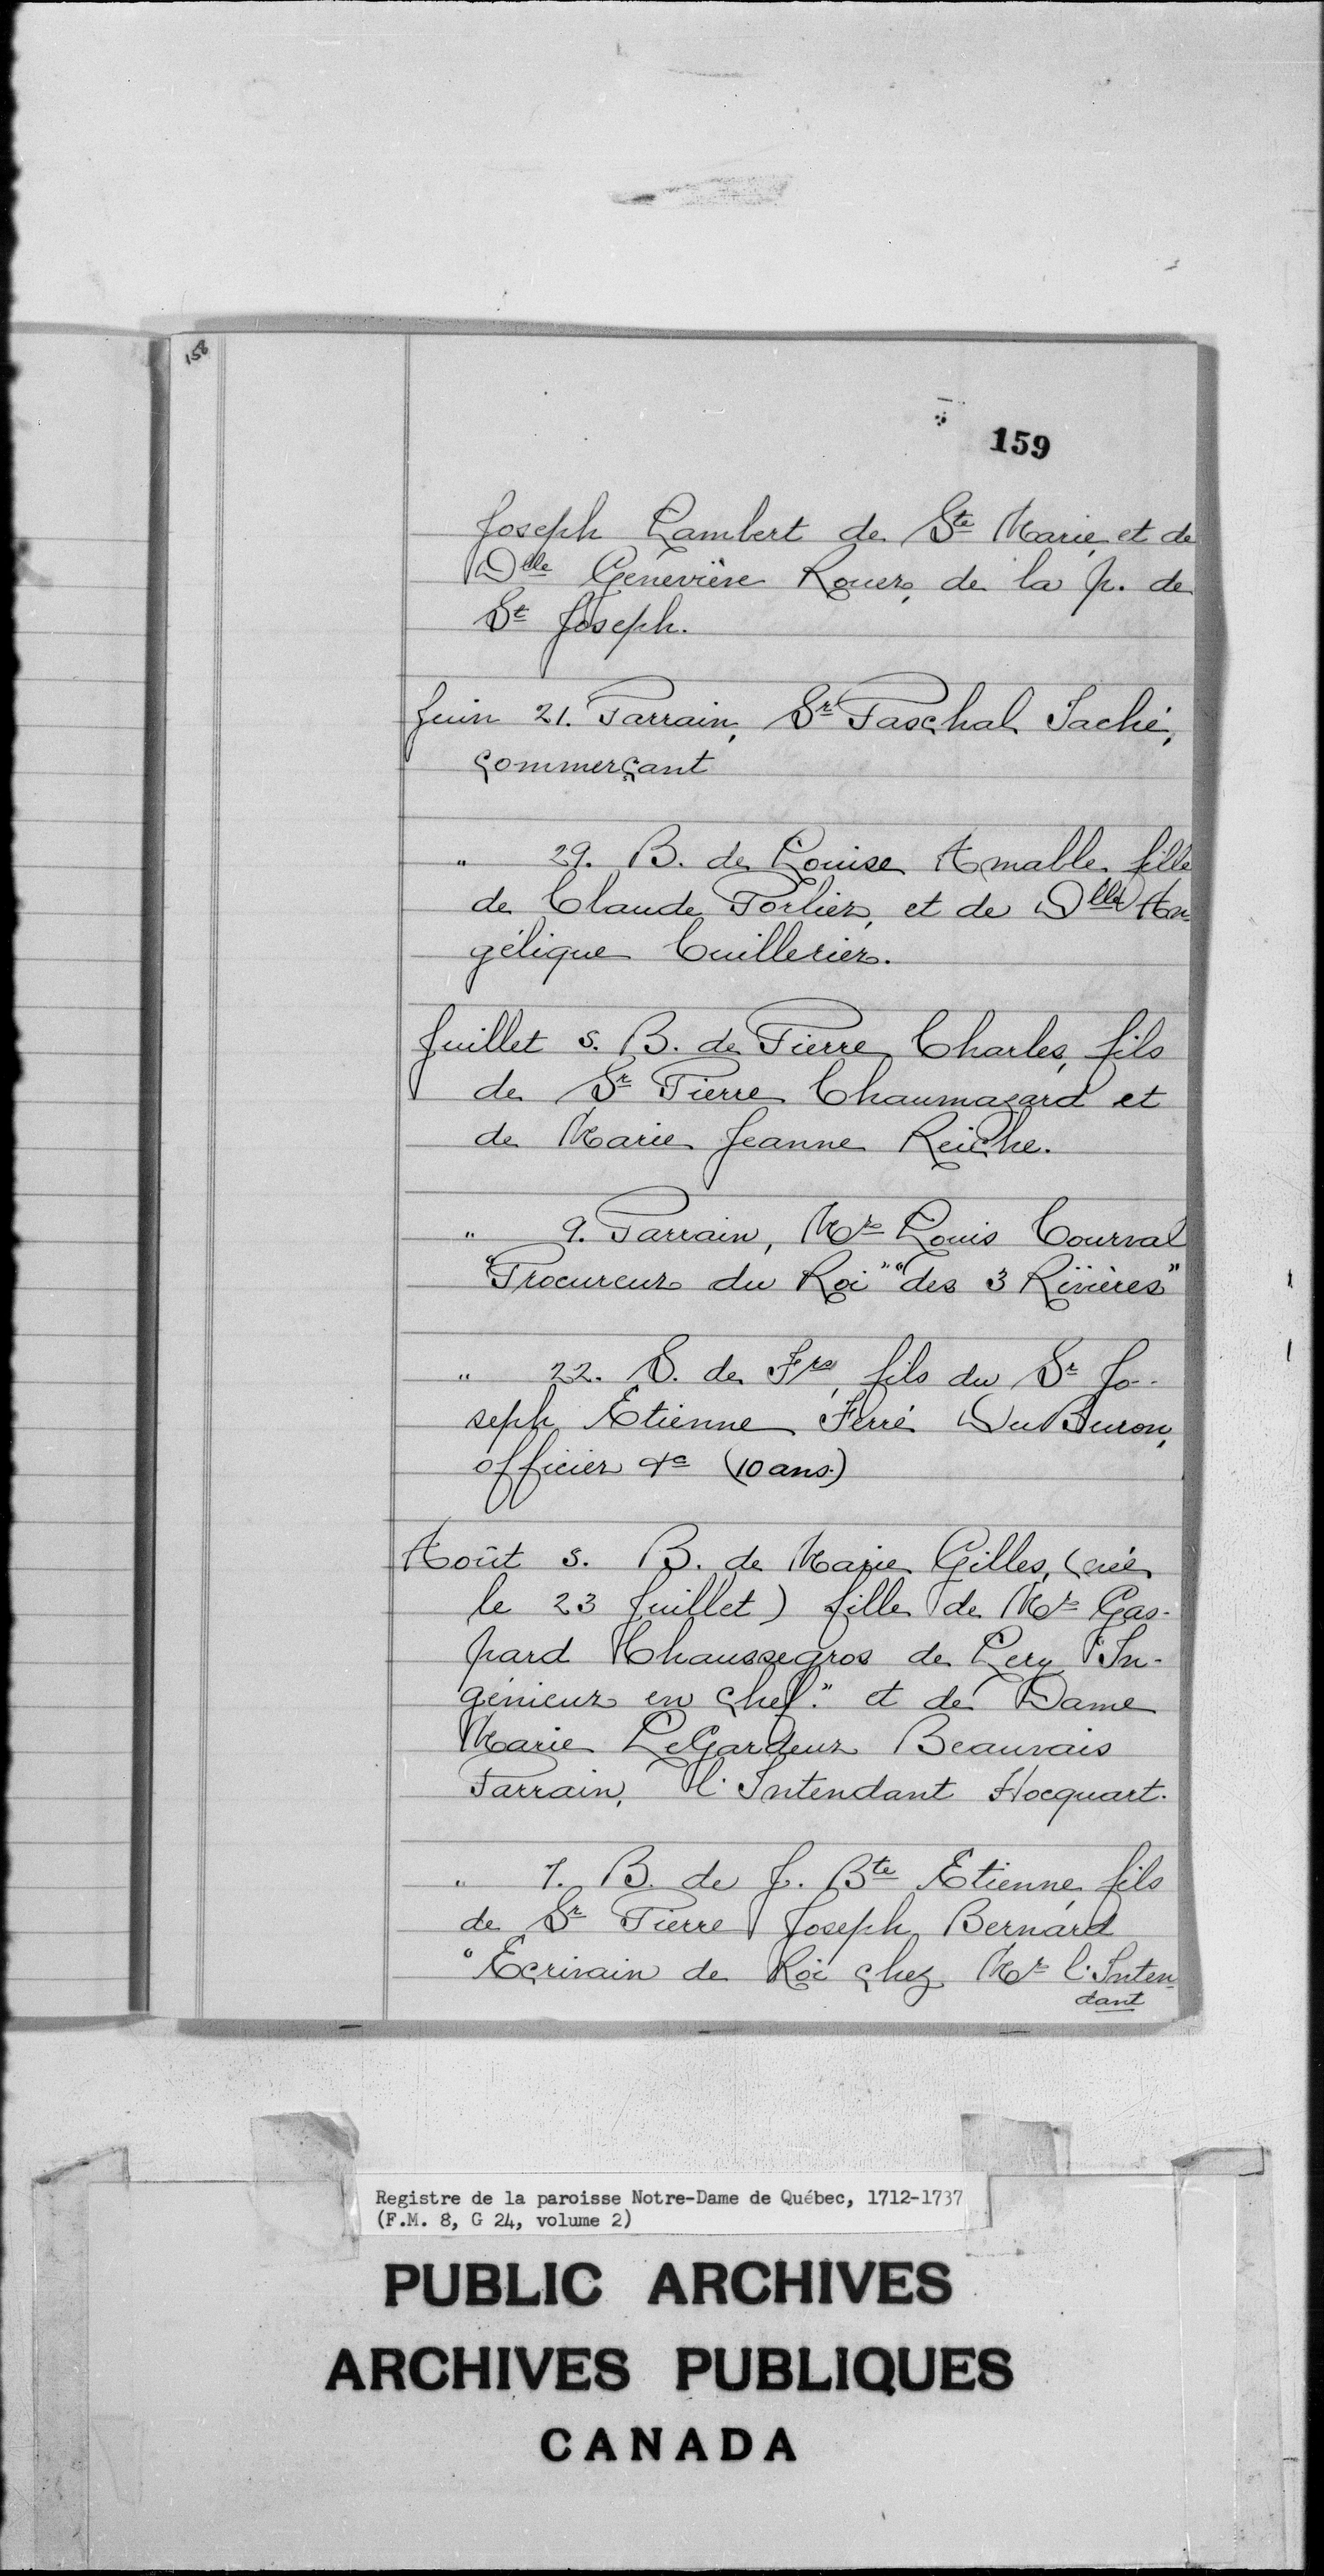 158
159
Joseph Lambert de Ste Marie, et de
Dlle Geneviève Rouer, de la p. de
St Joseph.
Juin 21. Parrain, Sr Paschal Taché,
commerçant
" 29. B. de Louise Amable fille
de Claude Porlier, et de Dlle An-
gélique Cuillerier.
Juillet 5. B. de Pierre Charles, fils
de Sr Pierre Chaumazard et
de Marie Jeanne Reiche.
" 9. Parrain, Mr Louis Courval
"Procureur du Roi" "des 3 Rivières"
" 22. S. de Frs, fils du Sr Jo-
seph Etienne Ferré DuBuron,
officier &c (10 ans.)
Août 5. B. de Marie Gilles, (née
le 23 Juillet) fille de Mr Gas-
pard Chaussegros de Lery "In-
génieur en chef." et de Dame
Marie LeGardeur Beauvais
Parrain, l'Intendant Hocquart.
" 7. B. de J. Bte Etienne, fils
de Sr Pierre Joseph Bernard
"Ecrivain de Roi chez Mr l'Inten-
dant
Registre de la paroisse Notre-Dame de Québec, 1712-1737
(F.M. 8, G 24, volume 2)
PUBLIC ARCHIVES
ARCHIVES PUBLIQUES
CANADA